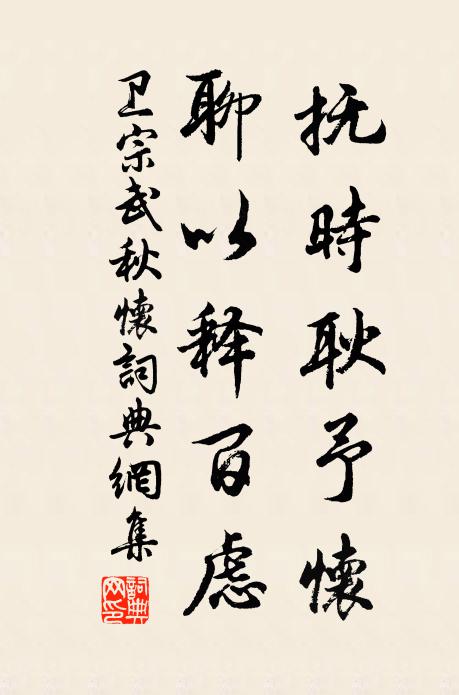 抚時耿予懷
聊以释百慮
卫宗武秋懷詞典網集
詞典网印